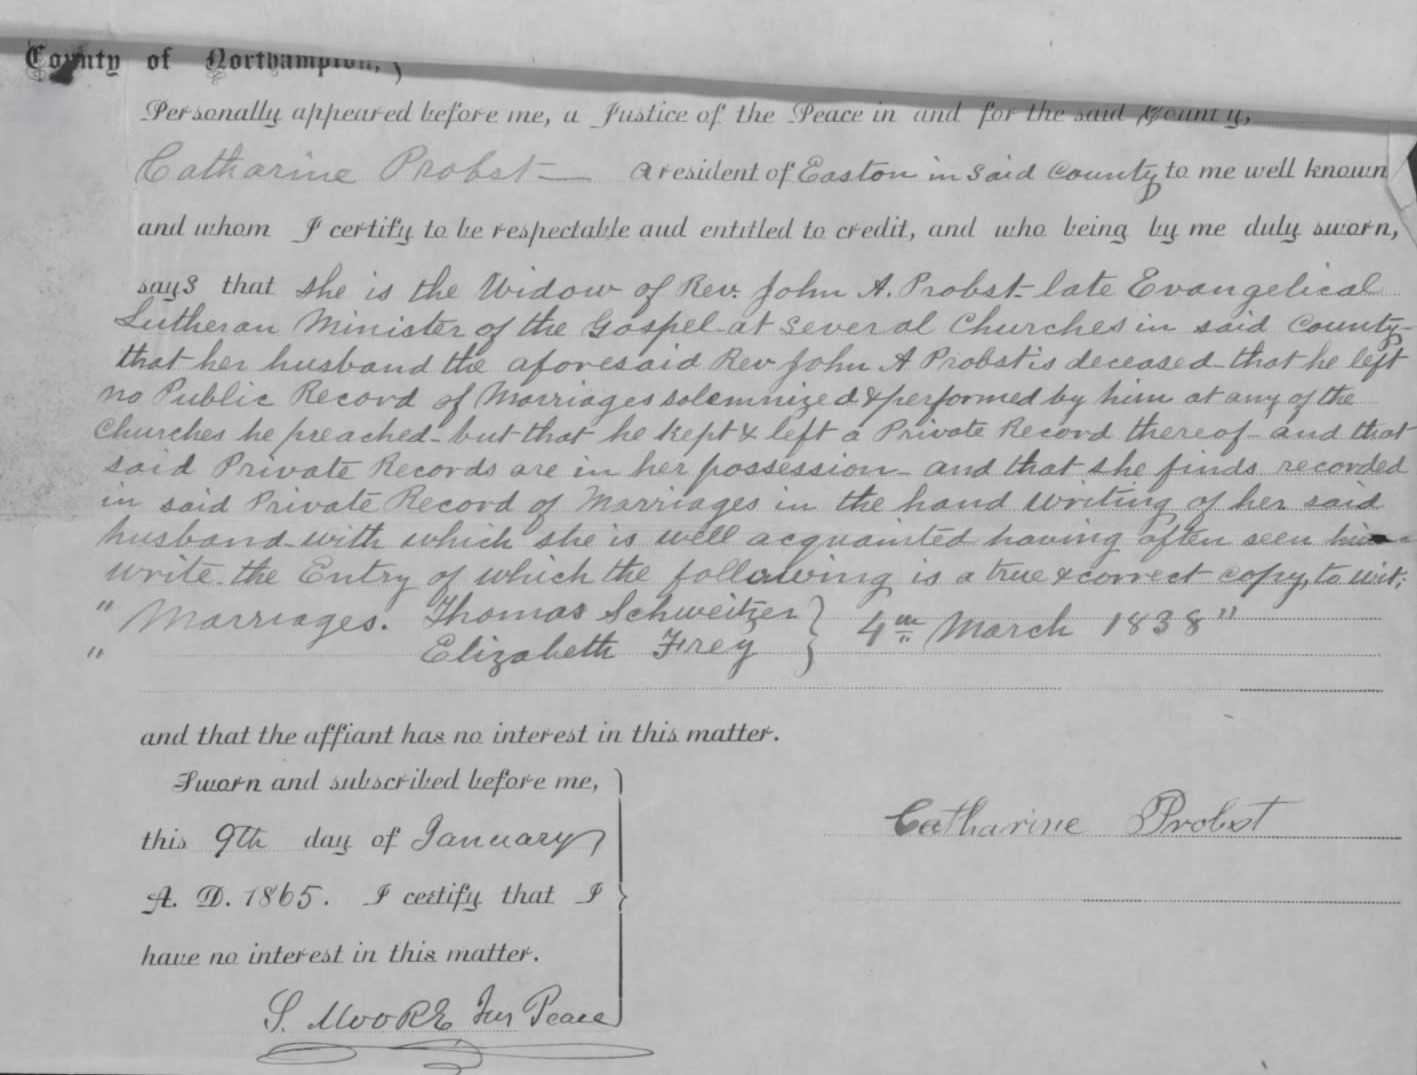 County of Northampton, }
Personally appeared before me, a Justice of the Peace in and for the said County,
Catharine Probst — a resident of Easton in said County to me well known
and whom I certify to be respectable and entitled to credit, and who being by me duly sworn,
says that she is the Widow of Rev. John A. Probst late Evangelical
Lutheran Minister of the Gospel at several Churches in said County-
that her husband the aforesaid Rev John A Probst is deceased - that he left
no Public Record of Marriages solemnized & performed by him at any of the
Churches he preached - but that he kept & left a Private Record thereof - and that
said Private Records are in her possession - and that she finds recorded
in said Private Record of Marriages in the hand writing of her said
husband with which she is well acquainted having often seen him
write the Entry of which the following is a true & correct copy, to wit;
" Marriages. Thomas Schweitzer } 4th March 1838"
" Elizabeth Frey
and that the affiant has no interest in this matter.
Sworn and subscribed before me,
this 9th day of January
A. D. 1865. I certify that I
have no interest in this matter.
Catharine Probst
S. Moore Jus Peace